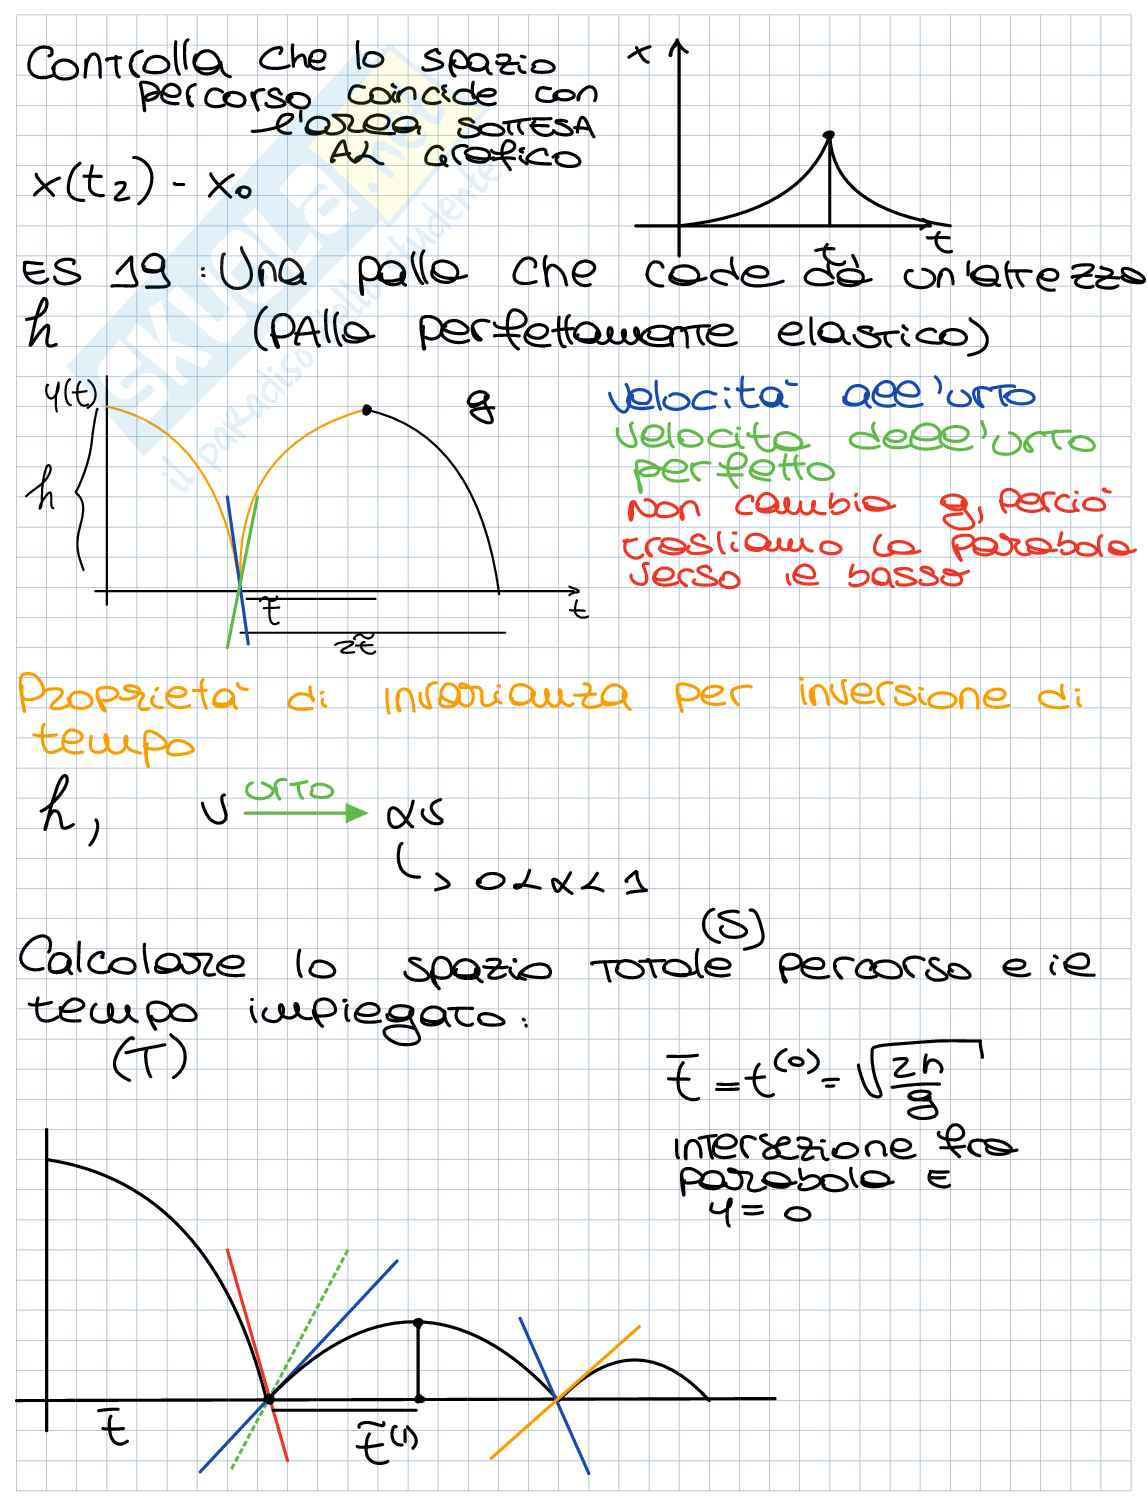 Controlla che lo spazio
percorso coincide con
l'area SOTTESA
AL Grafico
x
x(t₂) - x₀
t̃
t
ES 19 : Una palla che cade da un'altezza
h (PAlla perfettamente elastica)
y(t)
g
h
t̃
t
2t̃
velocità all'urto
velocita dell'urto
perfetto
Non cambia g, perciò
trasliamo la parabola
verso il basso
Proprietà di invarianza per inversione di
tempo
h, v urto αv
0<α<1
(S)
Calcolare lo spazio TOTale percorso e il
tempo impiegato.
(T)
t̄ = t⁽⁰⁾ = √(2h/g)
intersezione fra
parabola E
y = 0
t̄
t̃⁽¹⁾
SKUOLA.net
il paradiso dello studente